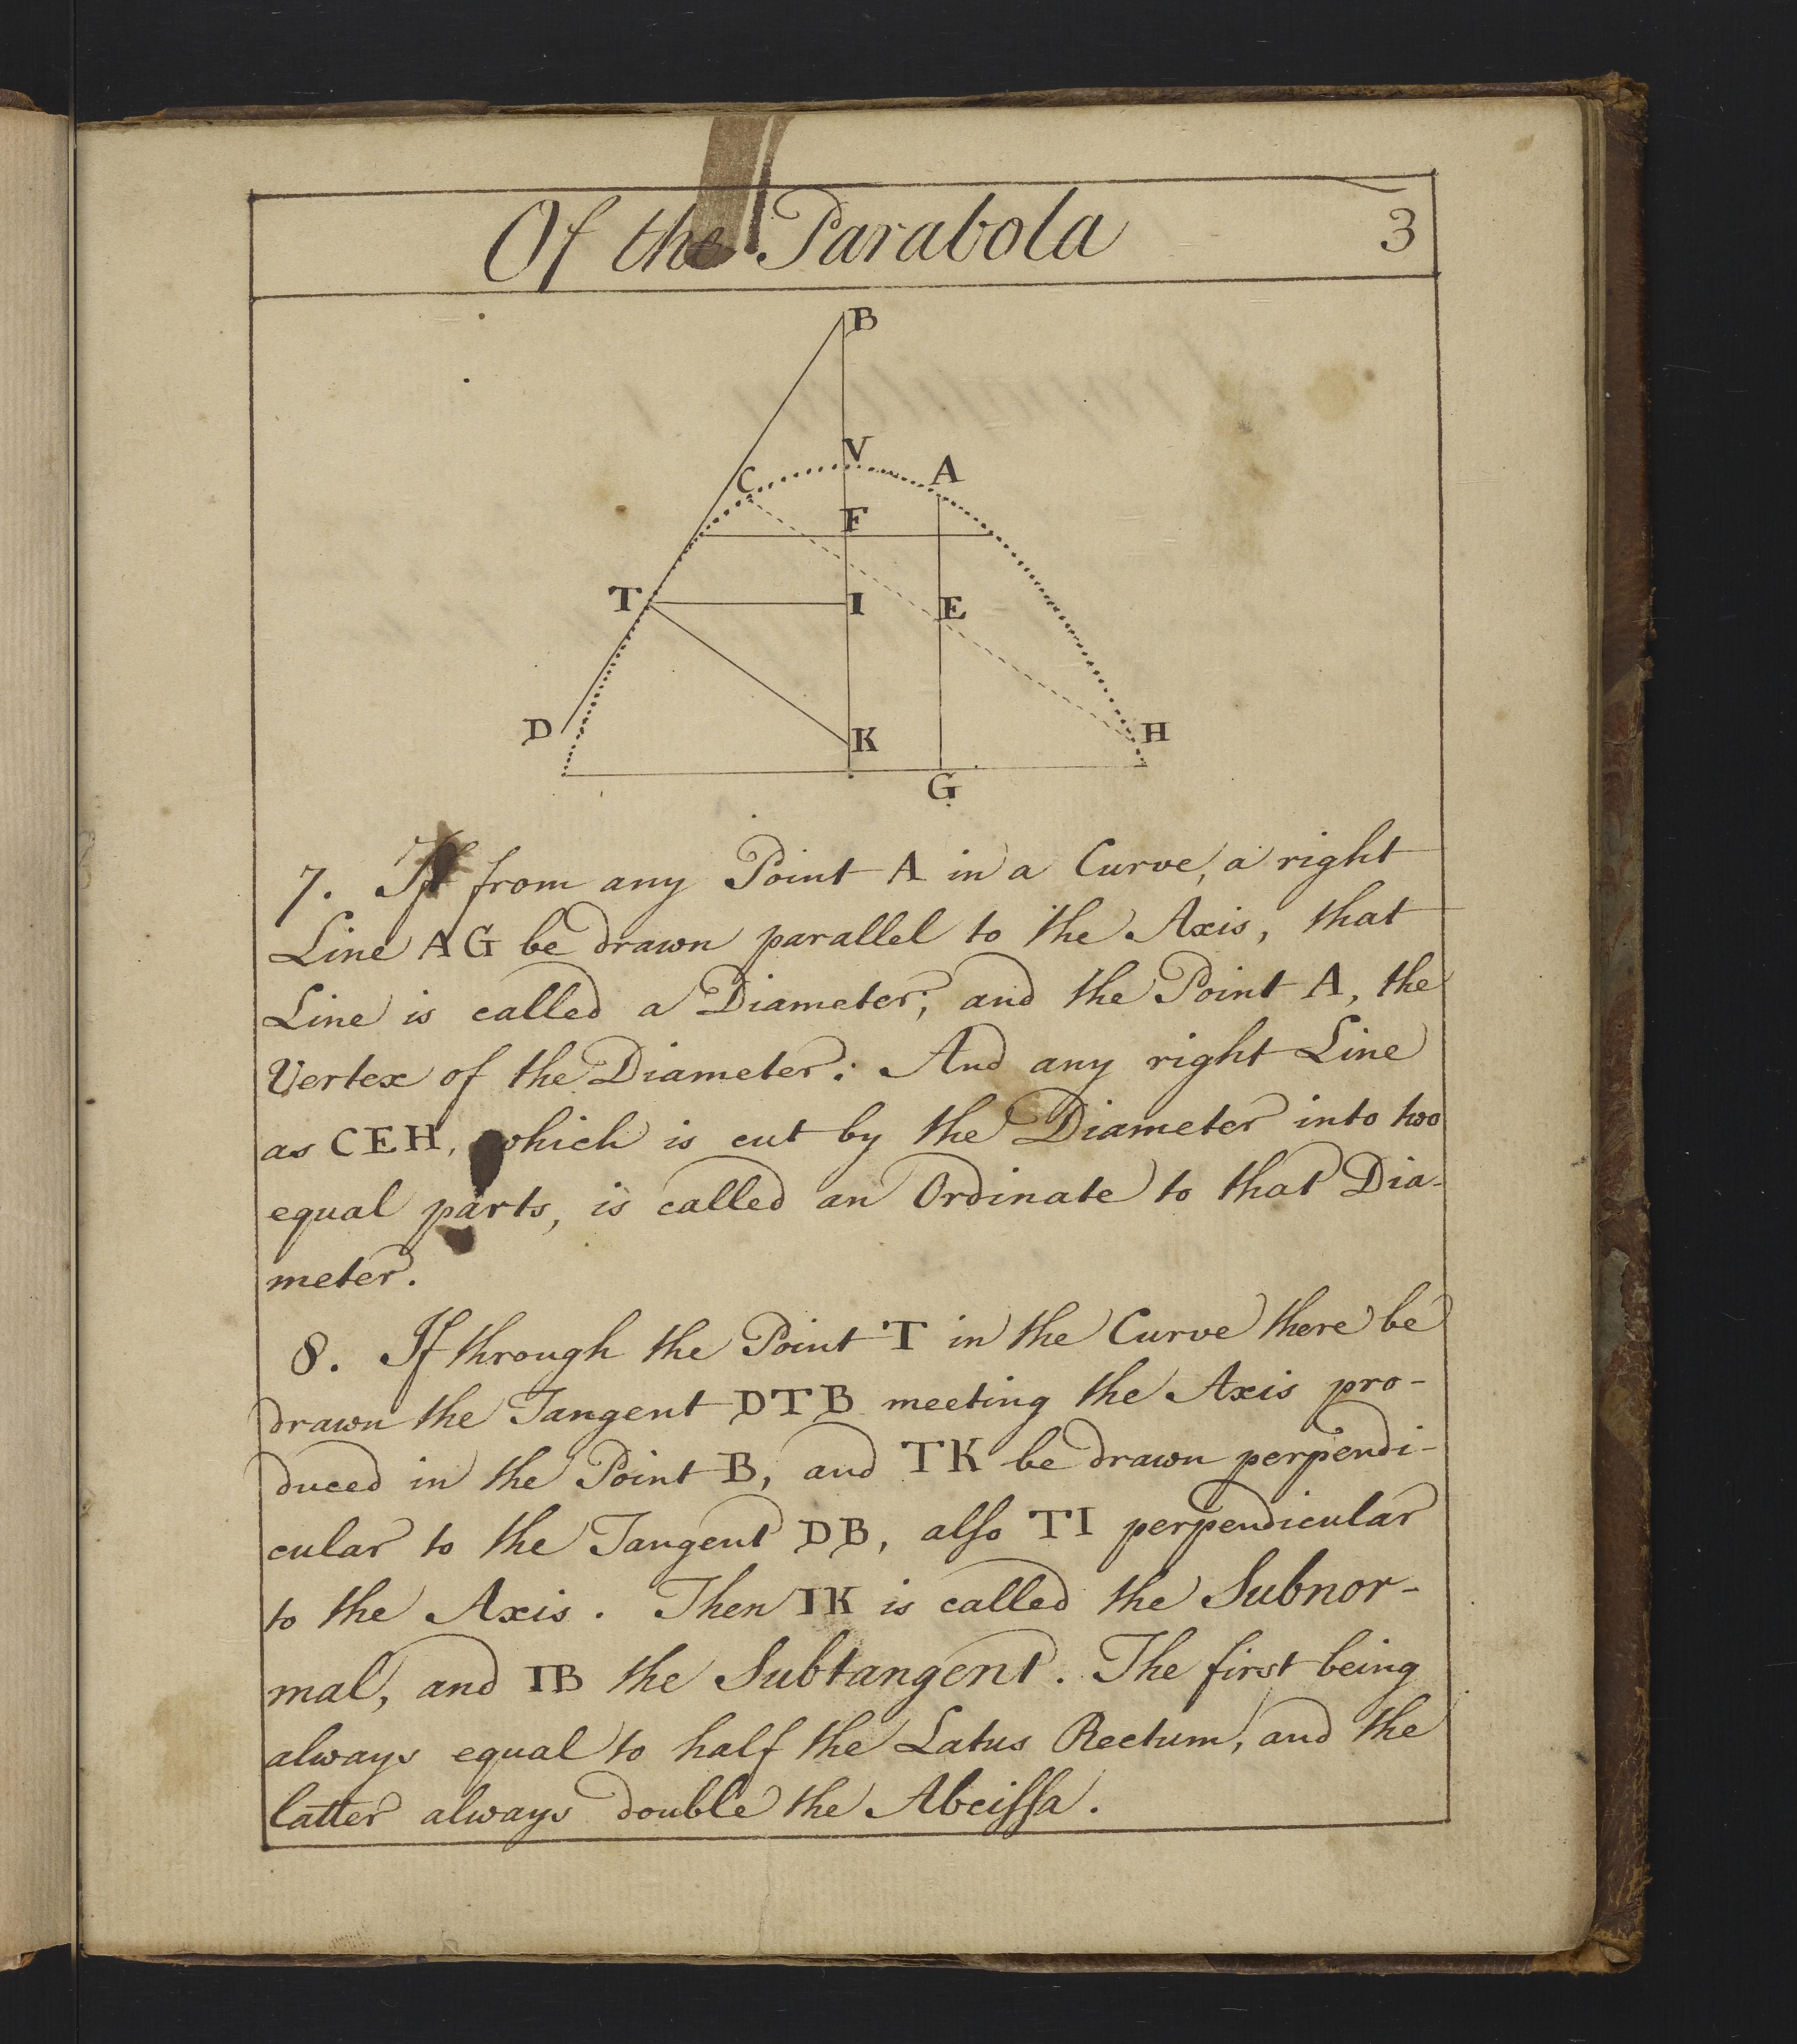 Of the Parabola 3
B
V
C A
F
T I E
D K H
G
7. If from any Point A in a Curve, a right
Line AG be drawn parallel to the Axis, that
Line is called a Diameter; and the Point A, the
Vertex of the Diameter: And any right Line
as CEH, which is cut by the Diameter into two
equal parts, is called an Ordinate to that Dia-
meter.
8. If through the Point T in the Curve there be
drawn the Tangent DTB meeting the Axis pro-
duced in the Point B, and TK be drawn perpendi-
cular to the Tangent DB, also TI perpendicular
to the Axis. Then IK is called the Subnor-
mal, and IB the Subtangent. The first being
always equal to half the Latus Rectum, and the
latter always double the Abcissa.